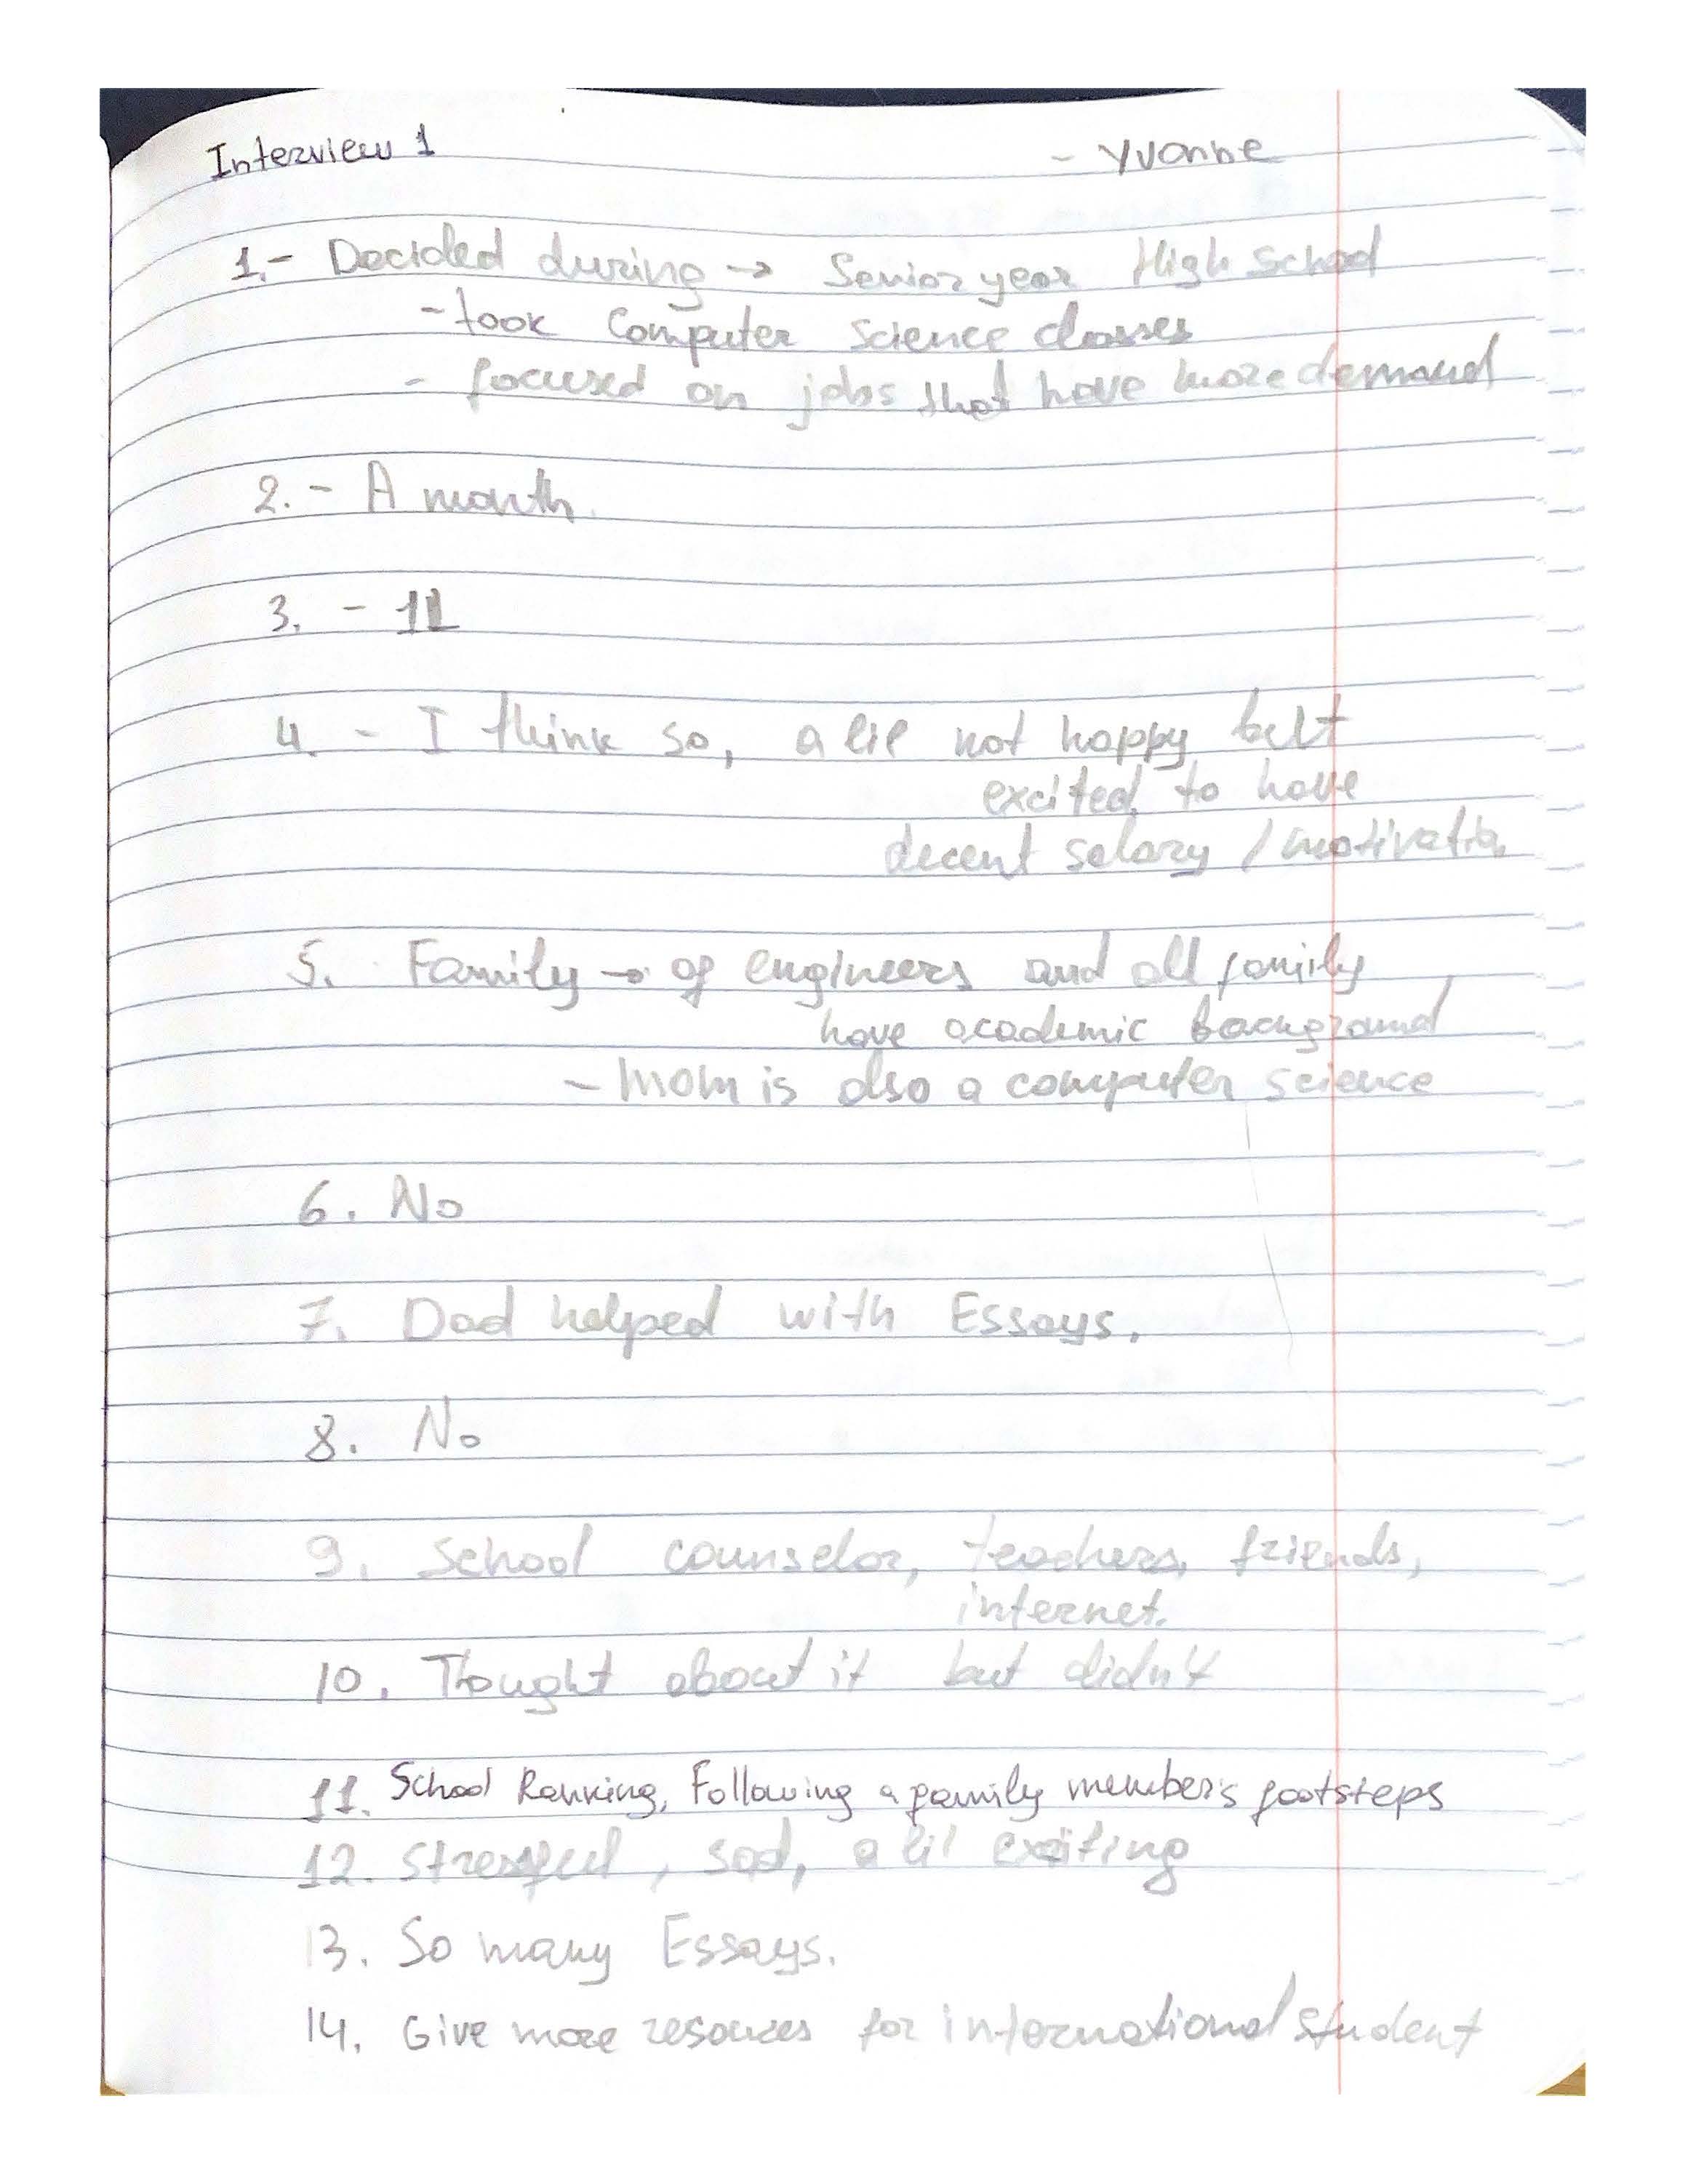 Interview 1 - Yvonne
1.- Decided during → Senior year High School
- took Computer Science classes
- focused on jobs that have more demand
2. - A month.
3. - 11
4. - I think so, a lil not happy but
excited to have
decent salary / motivation
5. Family → of engineers and all family
have academic background
- Mom is also a computer science
6. No
7. Dad helped with Essays.
8. No
9. School counselor, teachers, friends,
internet.
10. Thought about it but didn't
11. School Ranking, Following a family member's footsteps
12. Stressful, sad, a lil exciting
13. So many Essays.
14. Give more resources for international student